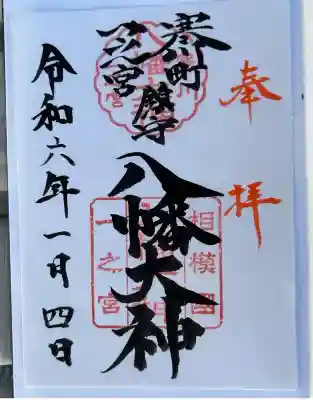 奉拝
寒川町
一之宮鎮守
八幡大神
相模國
一之宮
令和六年一月四日